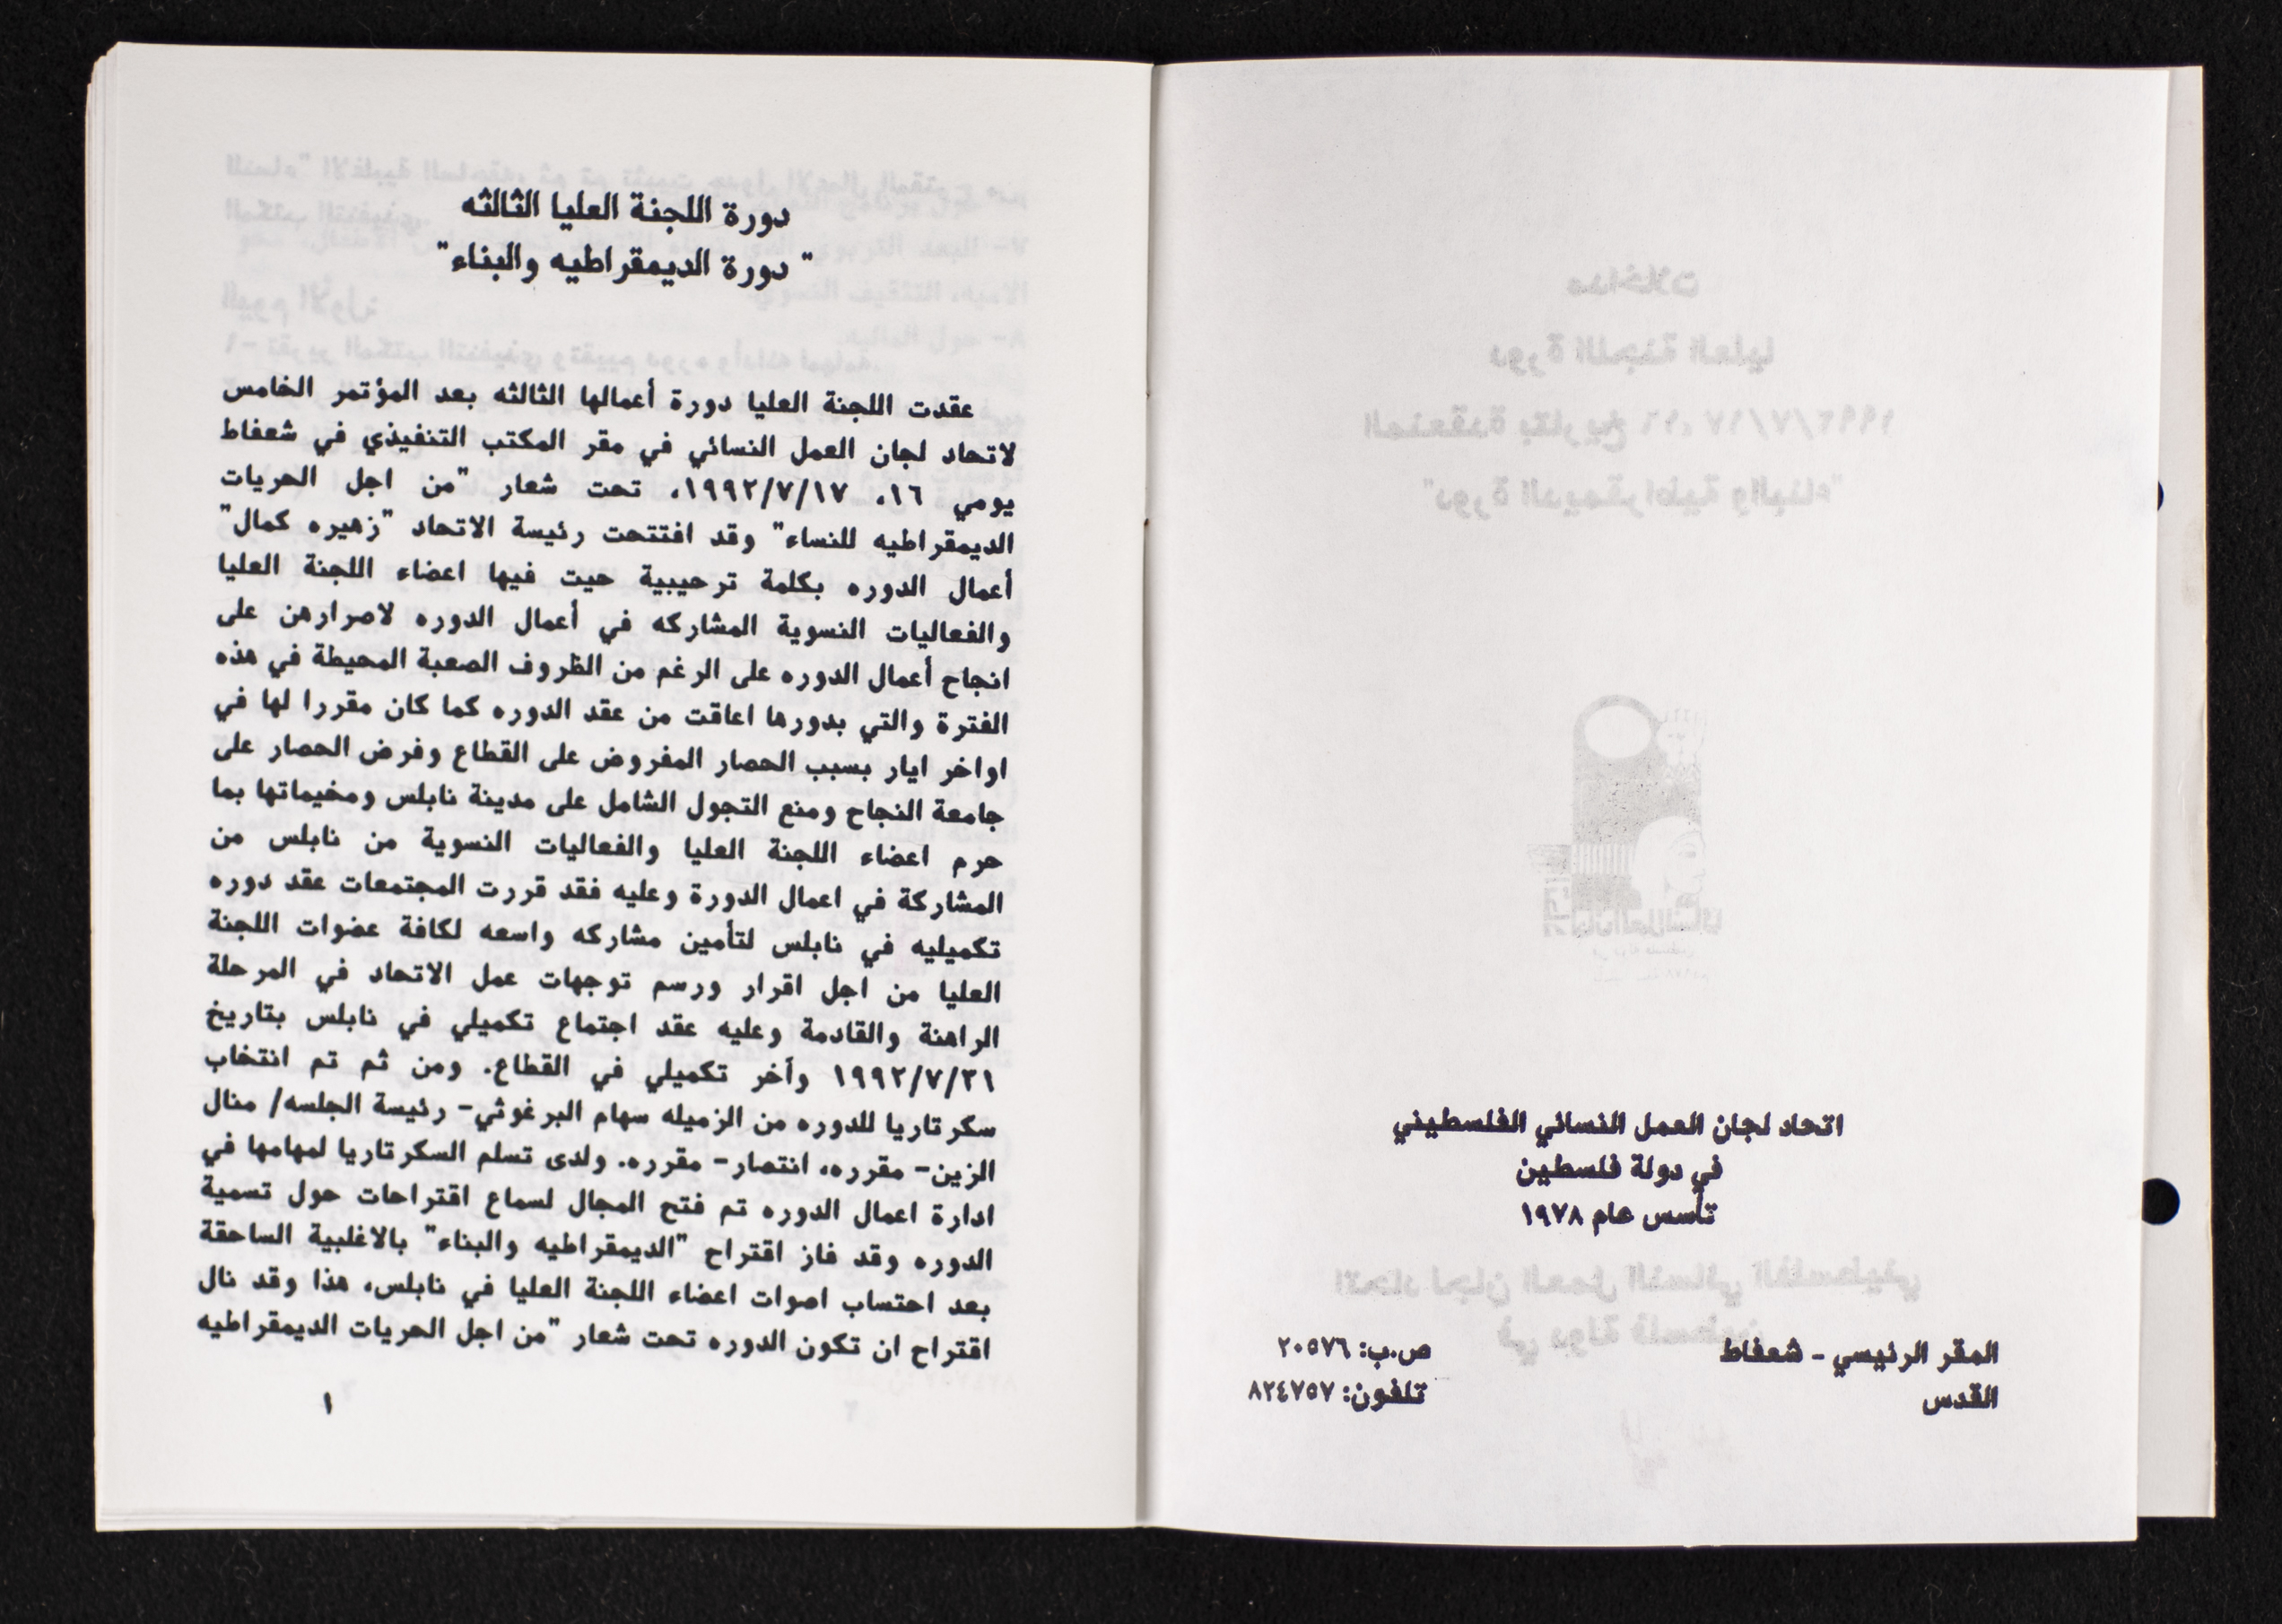 اتحاد لجان العمل النسائي الفلسطيني
في دولة فلسطين
تأسس عام ١٩٧٨
المقر الرئيسي - شعفاط
القدس
ص.ب: ٢٠٥٧٦
تلفون: ٨٢٤٧٥٧
دورة اللجنة العليا الثالثه
" دورة الديمقراطيه والبناء"
عقدت اللجنة العليا دورة أعمالها الثالثه بعد المؤتمر الخامس
لاتحاد لجان العمل النسائي في مقر المكتب التنفيذي في شعفاط
يومي ١٦، ١٩٩٢/٧/١٧، تحت شعار "من اجل الحريات
الديمقراطيه للنساء" وقد افتتحت رئيسة الاتحاد "زهيره كمال"
أعمال الدوره بكلمة ترحيبية حيت فيها اعضاء اللجنة العليا
والفعاليات النسوية المشاركه في أعمال الدوره لاصرارهن على
انجاح أعمال الدوره على الرغم من الظروف الصعبة المحيطة في هذه
الفترة والتي بدورها اعاقت من عقد الدوره كما كان مقررا لها في
اواخر ايار بسبب الحصار المفروض على القطاع وفرض الحصار على
جامعة النجاح ومنع التجول الشامل على مدينة نابلس ومخيماتها بما
حرم اعضاء اللجنة العليا والفعاليات النسوية من نابلس من
المشاركة في اعمال الدورة وعليه فقد قررت المجتمعات عقد دوره
تكميليه في نابلس لتأمين مشاركه واسعه لكافة عضوات اللجنة
العليا من اجل اقرار ورسم توجهات عمل الاتحاد في المرحلة
الراهنة والقادمة وعليه عقد اجتماع تكميلي في نابلس بتاريخ
١٩٩٢/٧/٢١ وأخر تكميلي في القطاع. ومن ثم تم انتخاب
سكرتاريا للدوره من الزميله سهام البرغوثي- رئيسة الجلسه/ منال
الزين- مقرره، انتصار- مقرره. ولدى تسلم السكرتاريا لمهامها في
ادارة اعمال الدوره تم فتح المجال لسماع اقتراحات حول تسمية
الدوره وقد فاز اقتراح "الديمقراطيه والبناء" بالاغلبية الساحقة
بعد احتساب اصوات اعضاء اللجنة العليا في نابلس، هذا وقد نال
اقتراح ان تكون الدوره تحت شعار "من اجل الحريات الديمقراطيه
١